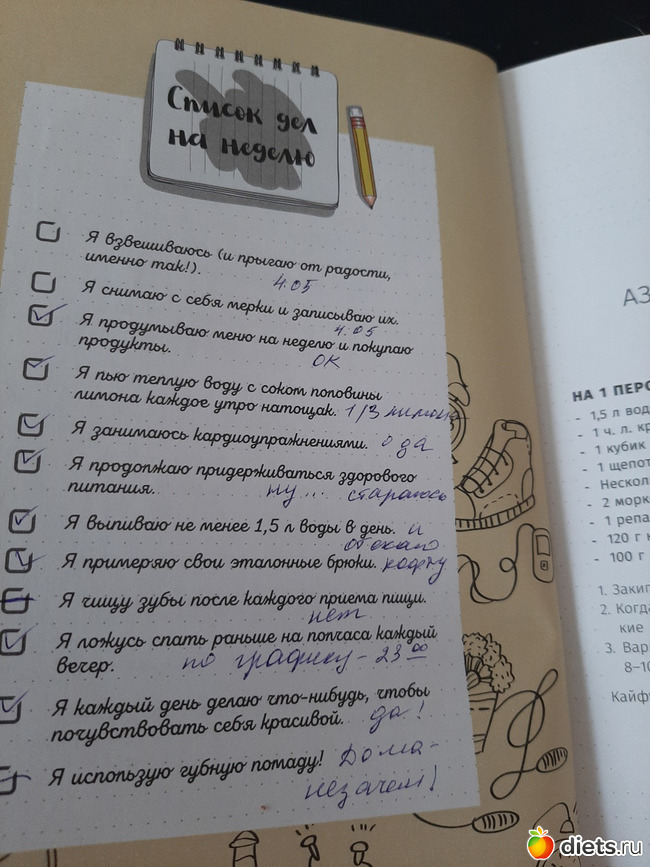 Список дел
на неделю
Я взвешиваюсь (и прыгаю от радости,
именно так!).
4.05
Я снимаю с себя мерки и записываю их.
4.05
Я продумываю меню на неделю и покупаю
продукты.
ОК
Я пью теплую воду с соком половины
лимона каждое утро натощак. 1/3 лимона
Я занимаюсь кардиоупражнениями. о да
Я продолжаю придерживаться здорового
питания. ну... стараюсь
Я выпиваю не менее 1,5 л воды в день. и
Я примеряю свои эталонные брюки. кофту
Я чищу зубы после каждого приема пищи.
нет
Я ложусь спать раньше на полчаса каждый
вечер. по графику - 23 00
Я каждый день делаю что-нибудь, чтобы
почувствовать себя красивой. да!
Я использую губную помаду! Дома -
незачем!
АЗ
НА 1 ПЕРСО
- 1,5 л вод
- 1 ч. л. кр
- 1 кубик
- 1 щепот
- Нескол
- 2 морк
- 1 репа
- 120 г
- 100 г
1. Закип
2. Когда
кие
3. Вар
8–10
Кайф
diets.ru